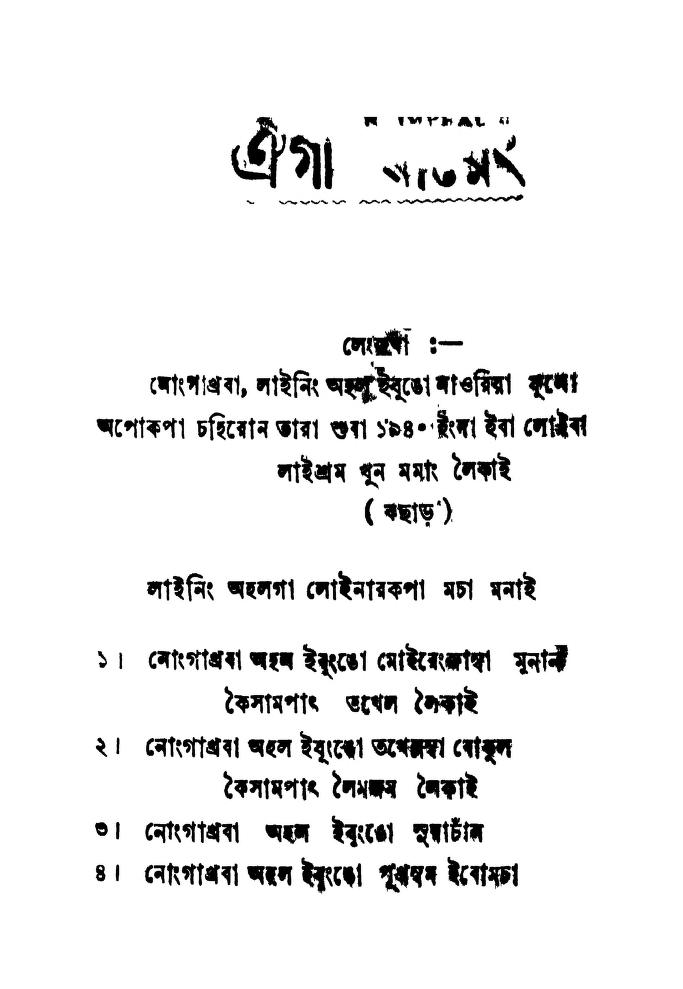 ঐগা
লেংবা :—
নোংগাশ্রবা, লাইনিং অহল ইবুঙো নাওরিয়া ফুলো
অপোকপা চহিরোন তারা শুবা ১৯৪০ ইংদা ইবা লোইবা
লাইশ্রম খুন মমাং লৈকাই
( কছাড় )
লাইনিং অহলগা লোইনারকপা মচা মনাই
১। নোংগাশ্রবা অহল ইবুংঙো মোইরেংজাম্বা মুনাল
কৈসামপাৎ তখেল লৈকাই
২। নোংগাশ্রবা অহল ইবুংঙো তখেল্লম্বা বোকুল
কৈসামপাৎ লৈমজম লৈকাই
৩। নোংগাশ্রবা অহল ইবুংঙো
৪। নোংগাশ্রবা অহল ইবুংঙো ইবোমচা